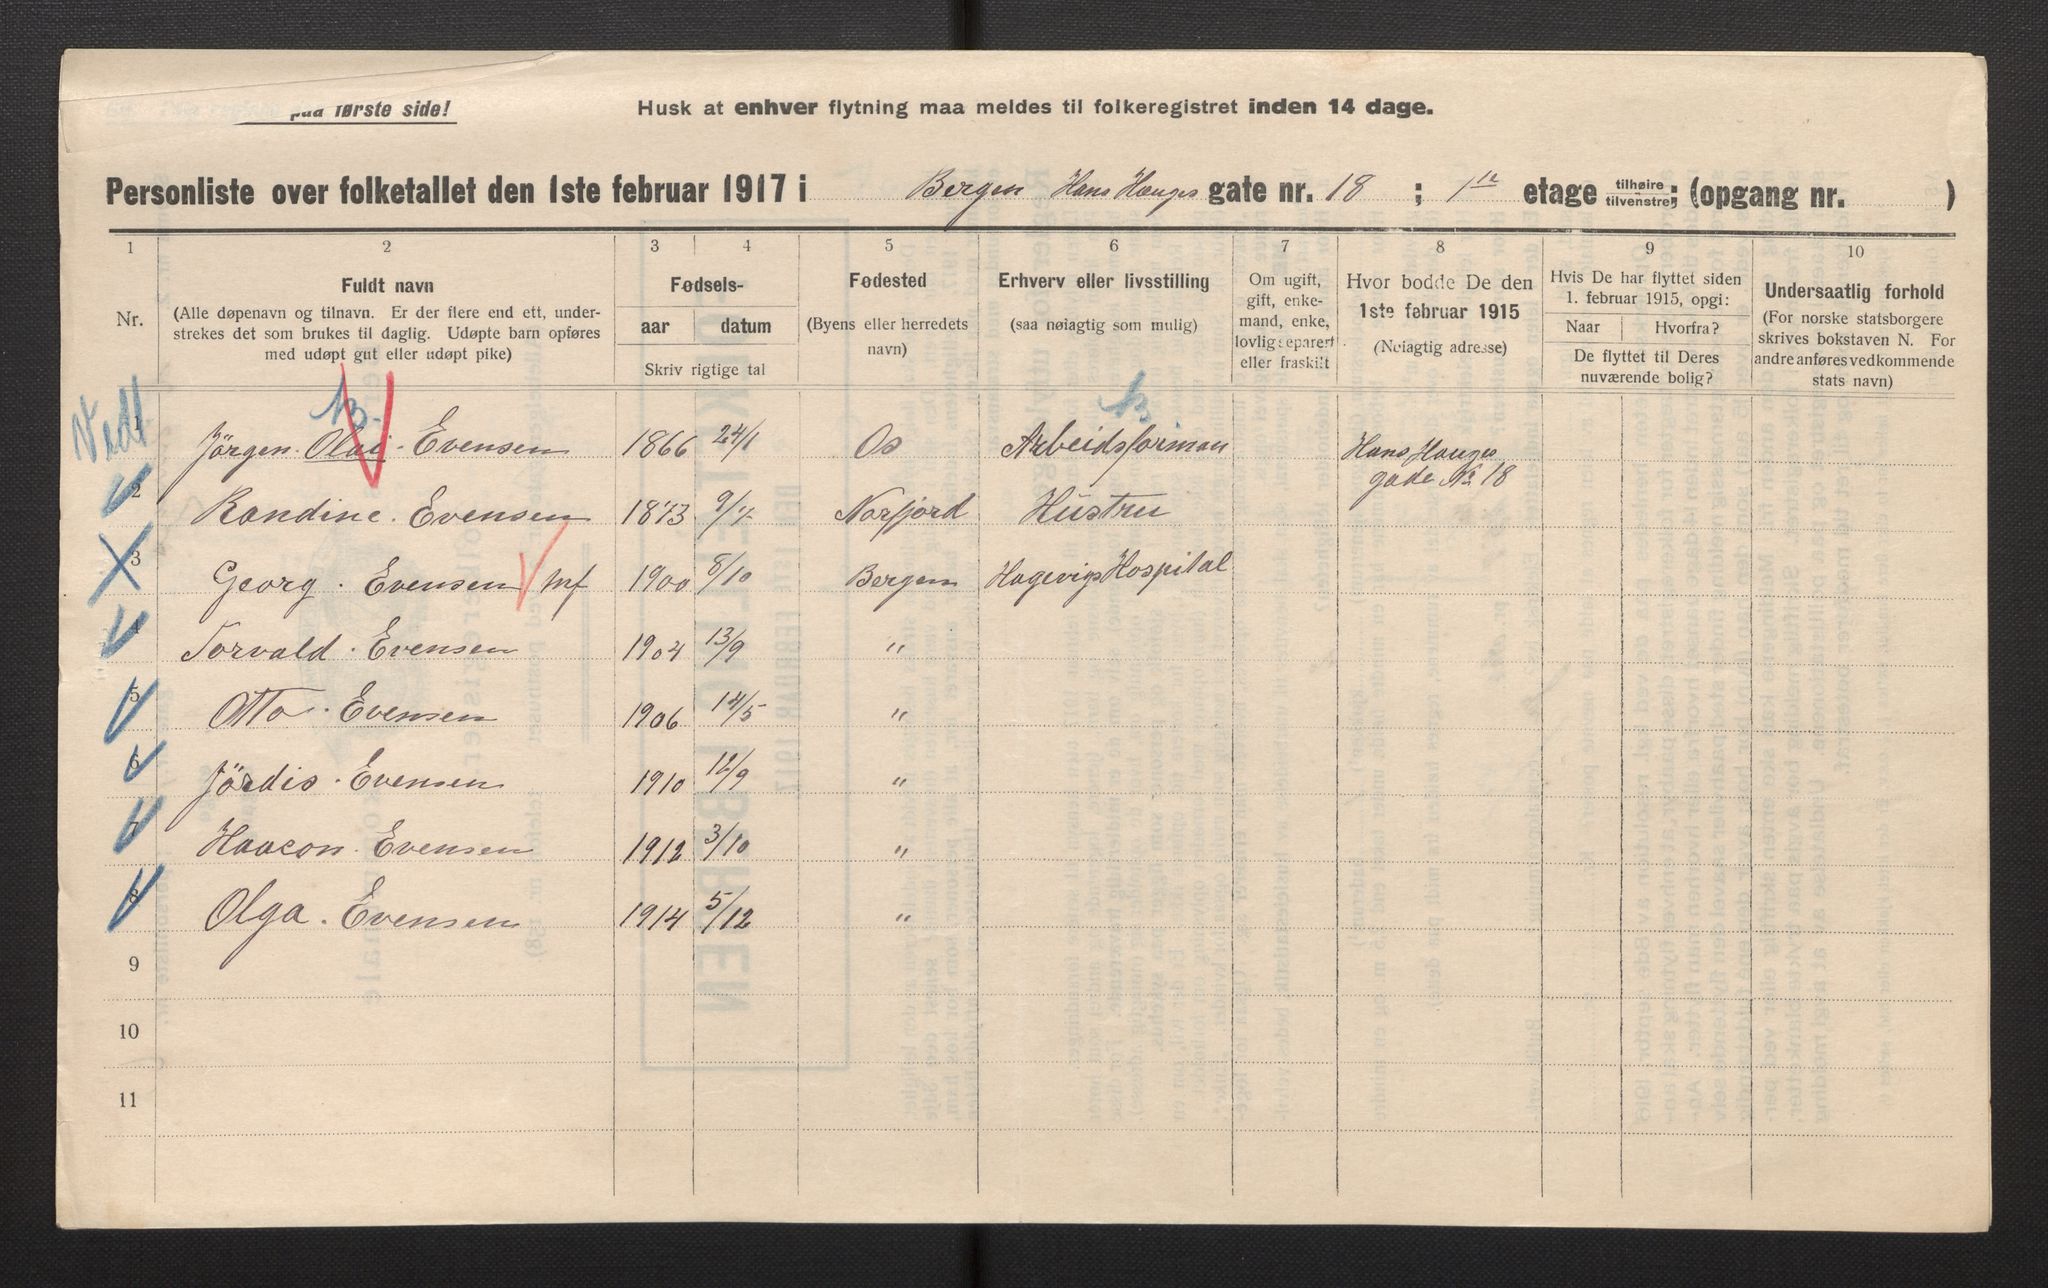 paa første side!
Husk at enhver flytning maa meldes til folkeregistret inden 14 dage.
Personliste over folketallet den 1ste februar 1917 i Bergen Hans Hauges gate nr. 18 ; 1ste etage tilhøire tilvenstre ; (opgang nr. )
1 2 3 4 5 6 7 8 9 10
Nr.
Fuldt navn
(Alle døpenavn og tilnavn. Er der flere end ett, under-
strekes det som brukes til daglig. Udøpte barn opføres
med udøpt gut eller udøpt pike)
Fødsels-
aar datum
Skriv rigtige tal
Fødested
(Byens eller herredets
navn)
Erhverv eller livsstilling
(saa nøiagtig som mulig)
Om ugift,
gift, enke-
mand, enke,
lovlig separert
eller fraskilt
Hvor bodde De den
1ste februar 1915
(Nøiagtig adresse)
Hvis De har flyttet siden
1. februar 1915, opgi:
Naar Hvorfra?
De flyttet til Deres
nuværende bolig?
Undersaatlig forhold
(For norske statsborgere
skrives bokstaven N. For
andre anføres vedkommende
stats navn)
Vedt
1 Jörgen Olai Evensen 1866 24/1 Os Arbeidsforman Hans Hauges
gade No 18
2 Randine Evensen 1873 9/7 Norfjord Hustru
3 Georg Evensen mf 1900 8/10 Bergen Hagevigs Hospital
4 Torvald Evensen 1904 13/9 "
5 Otto Evensen 1906 14/5 "
6 Jördis Evensen 1910 12/9 "
7 Haacon Evensen 1912 3/10 "
8 Olga Evensen 1914 5/12 "
9
10
11